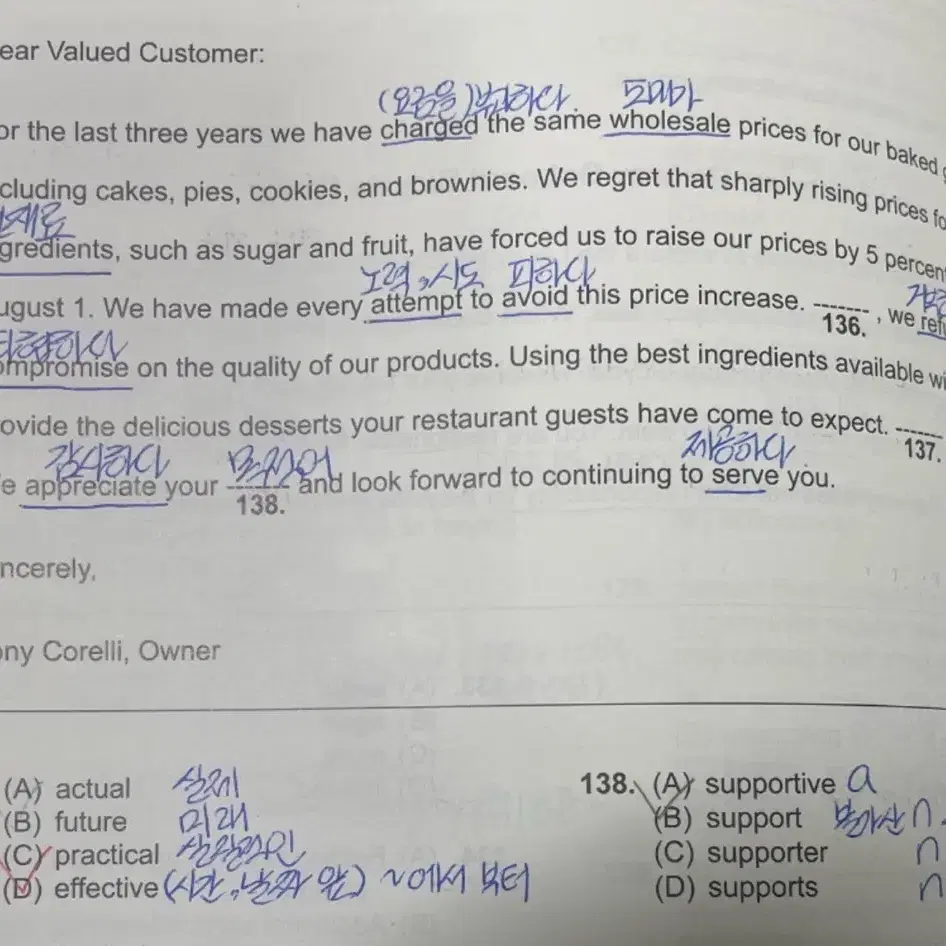 ear Valued Customer:
(요금을)부과하다. 도매가
or the last three years we have charged the same wholesale prices for our baked
cluding cakes, pies, cookies, and brownies. We regret that sharply rising prices fo
재료
gredients, such as sugar and fruit, have forced us to raise our prices by 5 percent
노력, 시도 피하다
ugust 1. We have made every attempt to avoid this price increase. ------- , we ref
136.
타협하다
ompromise on the quality of our products. Using the best ingredients available wi
ovide the delicious desserts your restaurant guests have come to expect. -------
137.
감사하다 목적어 제공하다
e appreciate your ------- and look forward to continuing to serve you.
138.
ncerely,
ony Corelli, Owner
(A) actual 실제
(B) future 미래
(C) practical 실용적인
(D) effective (시간, 날짜 앞) ~에서 부터
138. (A) supportive a
(B) support 불가산 n.
(C) supporter n
(D) supports n